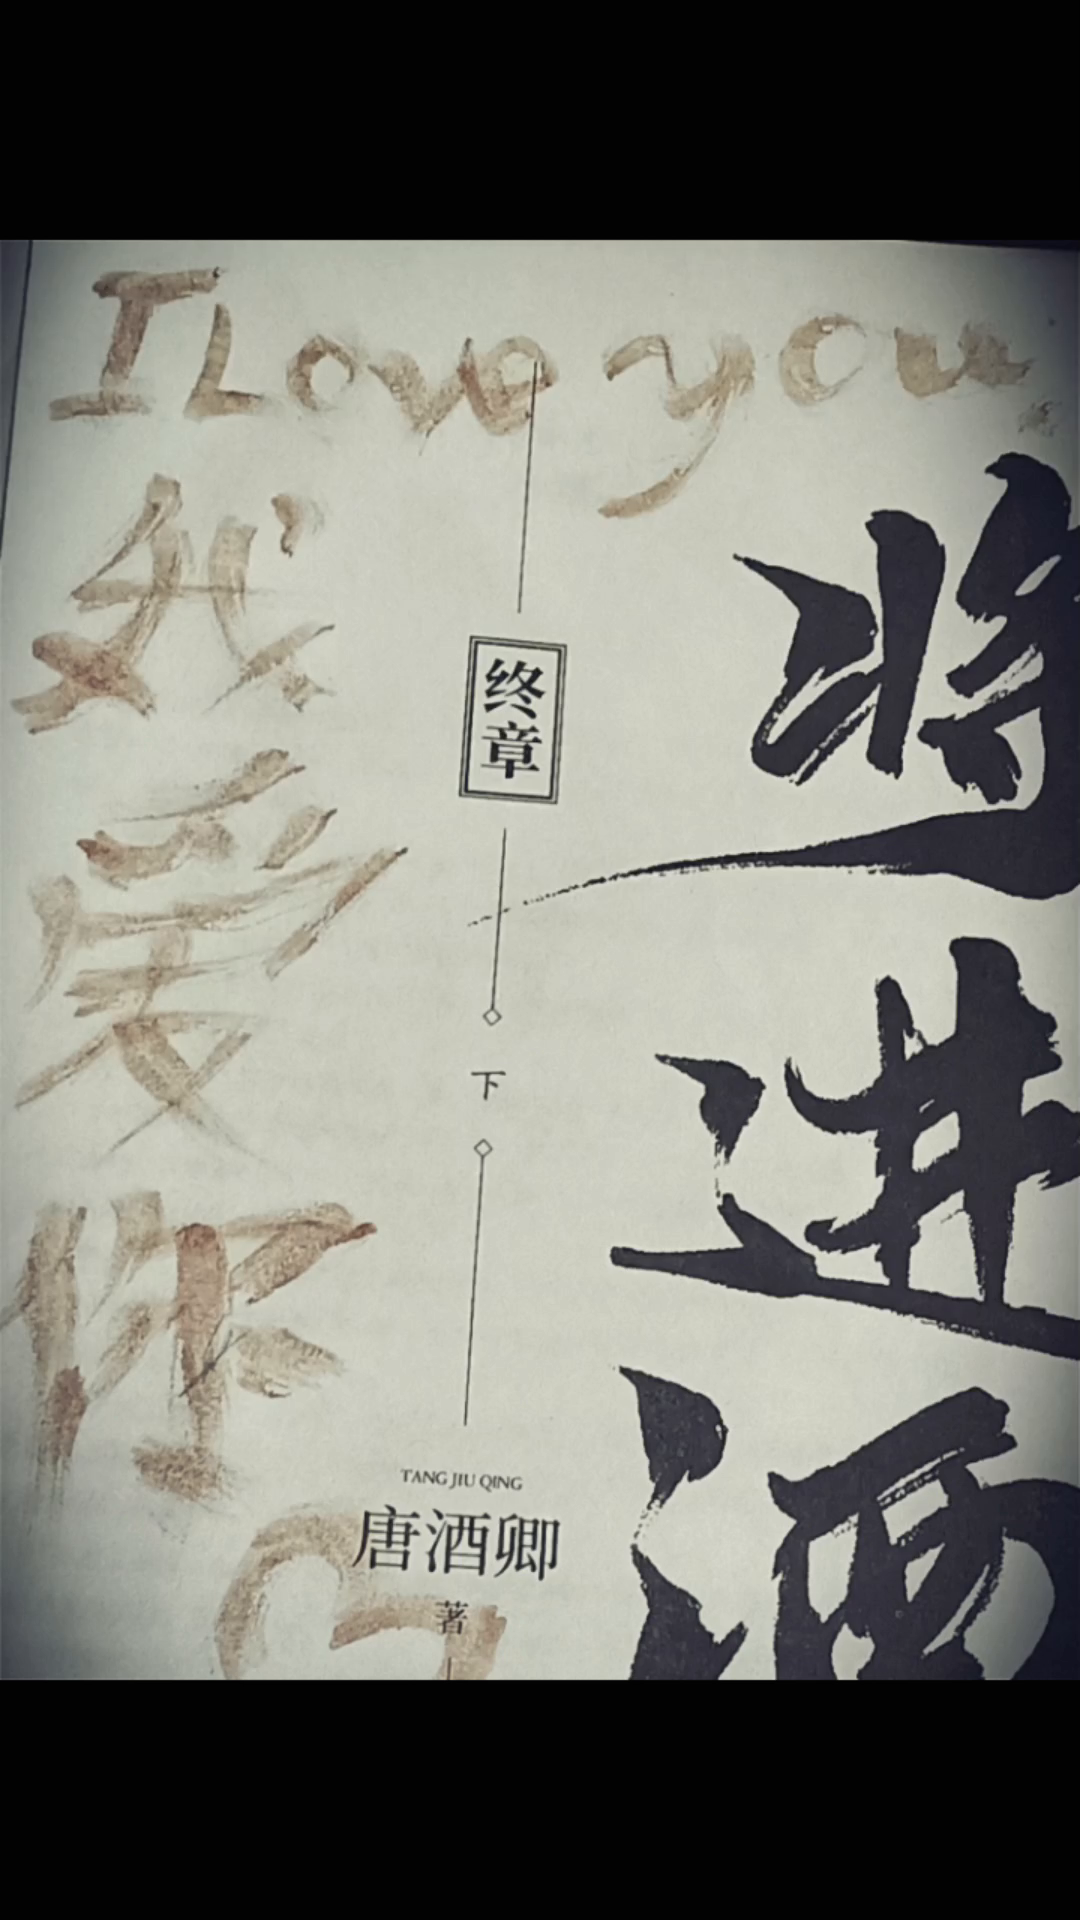 I Love you.
我爱你
将进酒
终章
下
TANG JIU QING
唐酒卿
著